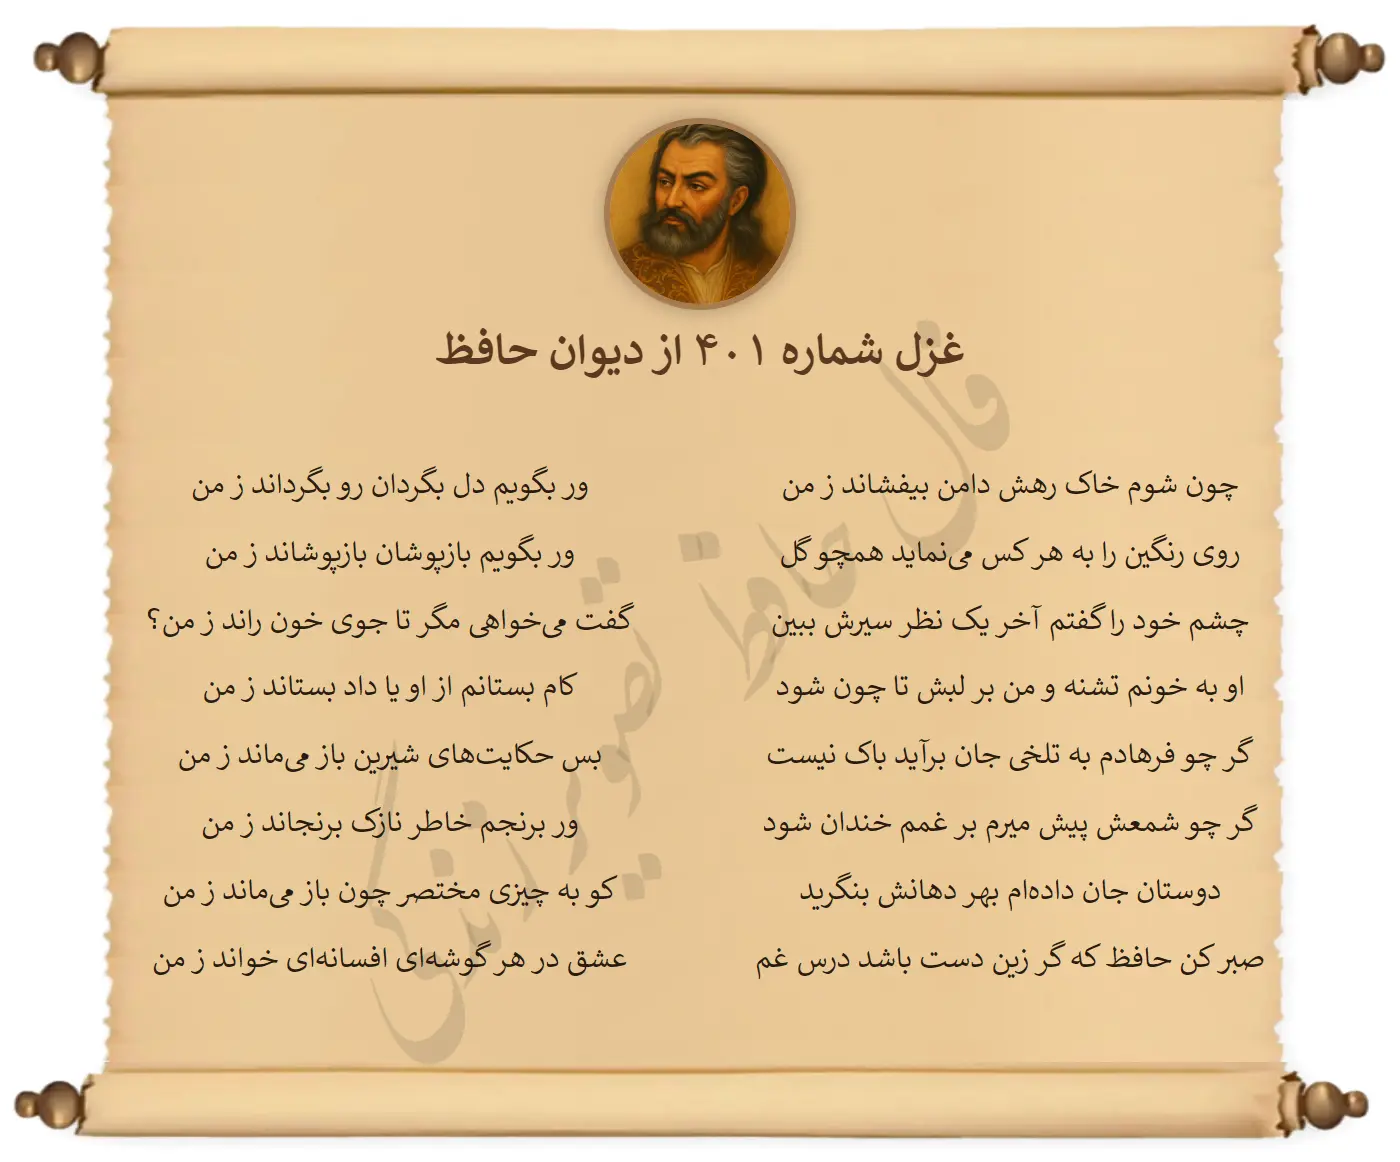 غزل شماره ۴۰۱ از دیوان حافظ
چون شوم خاک رهش دامن بیفشاند ز من
ور بگویم دل بگردان رو بگرداند ز من
روی رنگین را به هر کس می‌نماید همچو گل
ور بگویم بازپوشان بازپوشاند ز من
چشم خود را گفتم آخر یک نظر سیرش ببین
گفت می‌خواهی مگر تا جوی خون راند ز من؟
او به خونم تشنه و من بر لبش تا چون شود
کام بستانم از او یا داد بستاند ز من
گر چو فرهادم به تلخی جان برآید باک نیست
بس حکایت‌های شیرین باز می‌ماند ز من
گر چو شمعش پیش میرم بر غمم خندان شود
ور برنجم خاطر نازک برنجاند ز من
دوستان جان داده‌ام بهر دهانش بنگرید
کو به چیزی مختصر چون باز می‌ماند ز من
صبر کن حافظ که گر زین دست باشد درس غم
عشق در هر گوشه‌ای افسانه‌ای خواند ز من
فال حافظ تصویر زندگی